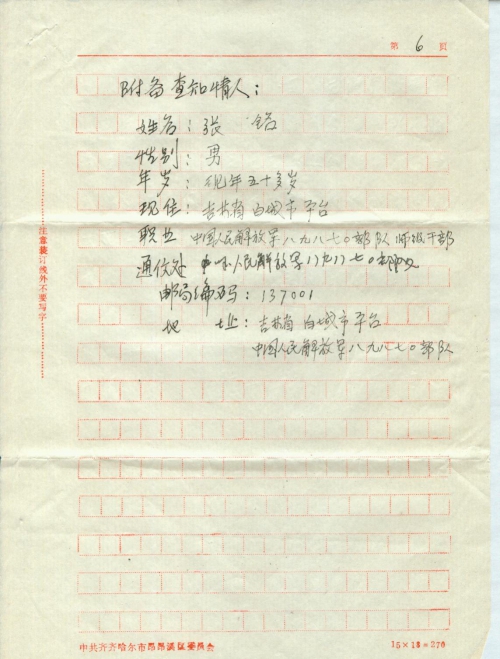 第 6 页
附备查知情人：
姓名：张 铭
性别：男
年岁：现年五十多岁
现住：吉林省白城市平台
职业 中国人民解放军八九八七〇部队师级干部
通信处 中国人民解放军八九八七〇部队
邮局编码：137001
地 址：吉林省白城市平台
中国人民解放军八九八七〇部队
注意装订线外不要写字
中共齐齐哈尔市昂昂溪区委员会
15×18=270